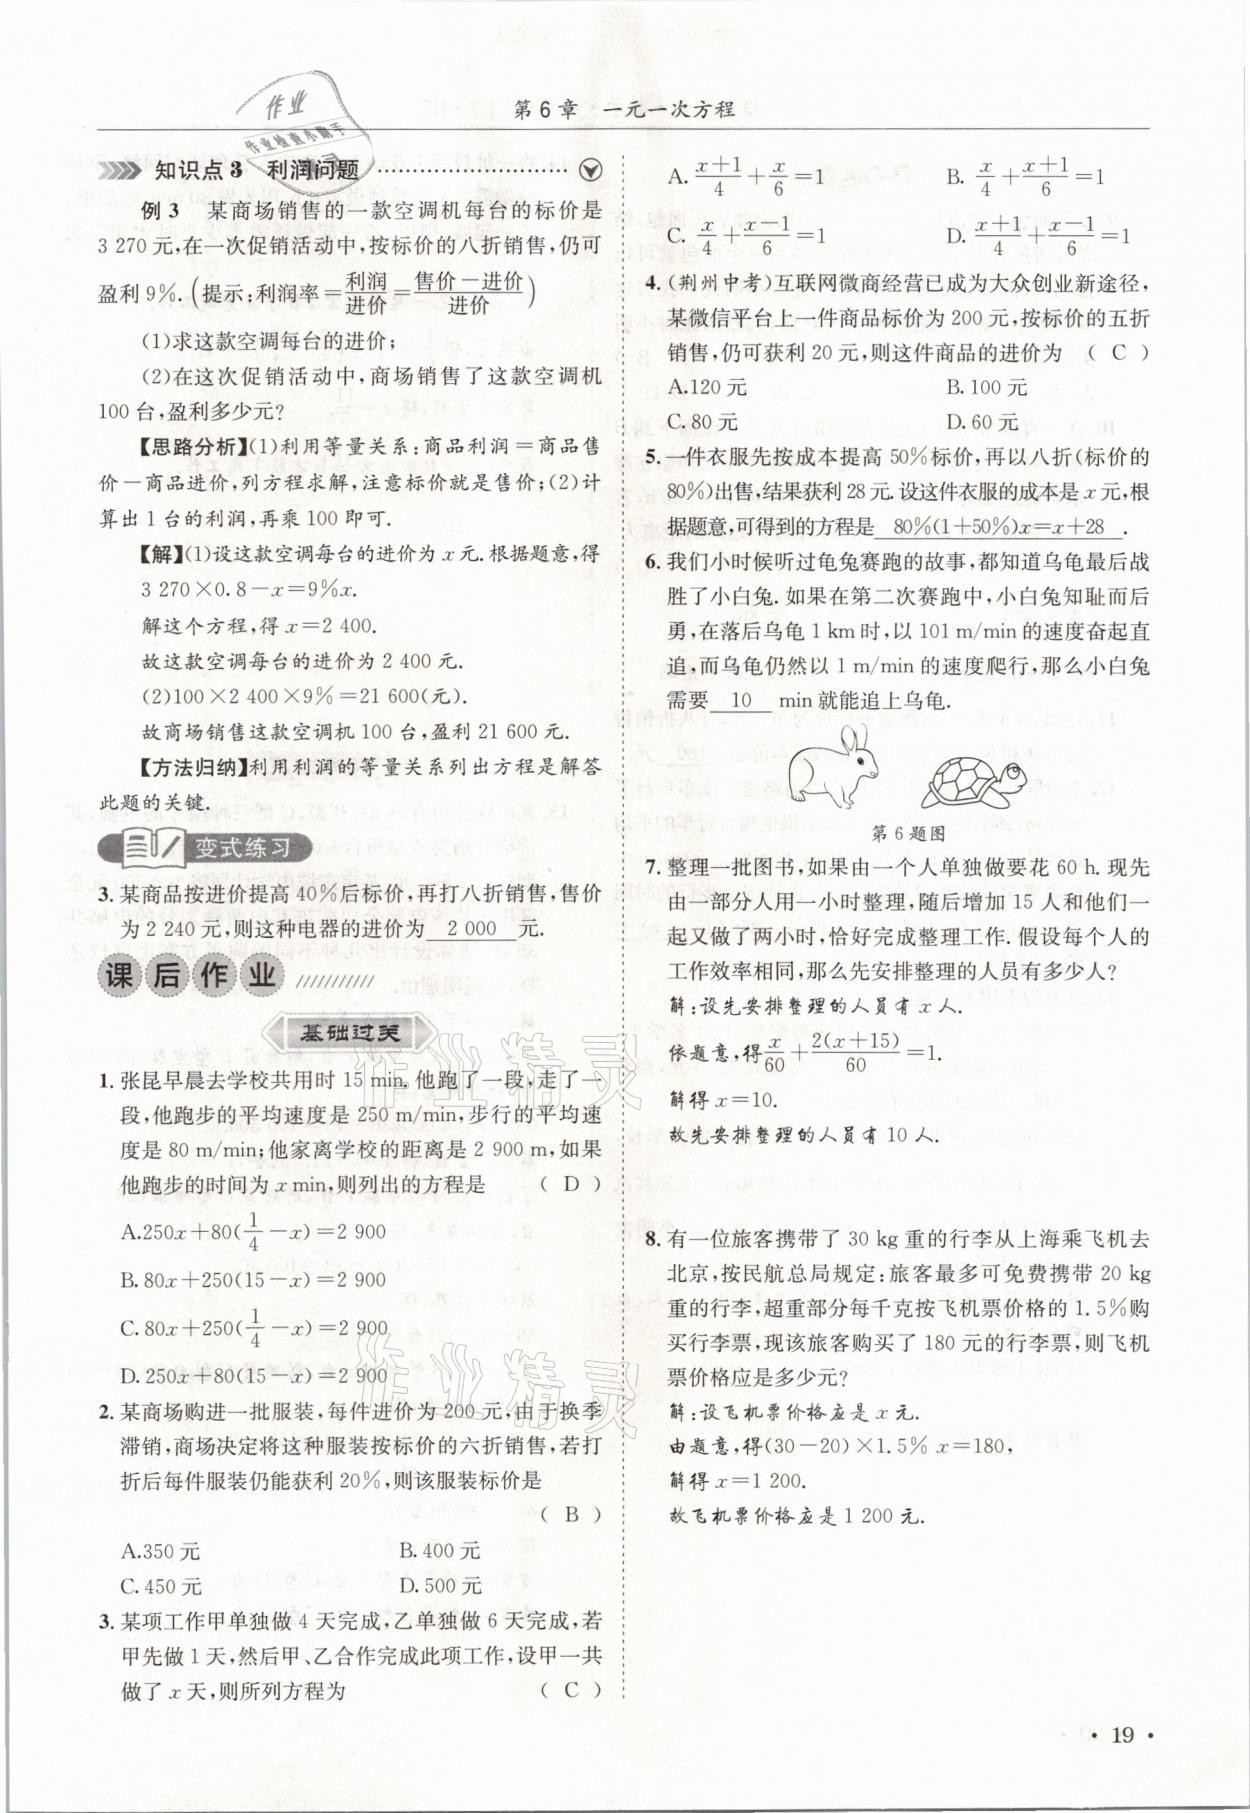 第6章 一元一次方程
作业
作业检查小助手
知识点3 利润问题
例3 某商场销售的一款空调机每台的标价是
3 270元,在一次促销活动中,按标价的八折销售,仍可
盈利9%.(提示:利润率=利润/进价=售价-进价/进价)
(1)求这款空调每台的进价;
(2)在这次促销活动中,商场销售了这款空调机
100台,盈利多少元?
【思路分析】(1)利用等量关系:商品利润=商品售
价-商品进价,列方程求解,注意标价就是售价;(2)计
算出1台的利润,再乘100即可.
【解】(1)设这款空调每台的进价为x元.根据题意,得
3 270×0.8-x=9%x.
解这个方程,得x=2 400.
故这款空调每台的进价为2 400元.
(2)100×2 400×9%=21 600(元).
故商场销售这款空调机100台,盈利21 600元.
【方法归纳】利用利润的等量关系列出方程是解答
此题的关键.
变式练习
3.某商品按进价提高40%后标价,再打八折销售,售价
为2 240元,则这种电器的进价为 2 000 元.
课后作业
基础过关
1.张昆早晨去学校共用时15 min,他跑了一段,走了一
段,他跑步的平均速度是250 m/min,步行的平均速
度是80 m/min;他家离学校的距离是2 900 m,如果
他跑步的时间为x min,则列出的方程是 (D)
A.250x+80(1/4-x)=2 900
B.80x+250(15-x)=2 900
C.80x+250(1/4-x)=2 900
D.250x+80(15-x)=2 900
2.某商场购进一批服装,每件进价为200元,由于换季
滞销,商场决定将这种服装按标价的六折销售,若打
折后每件服装仍能获利20%,则该服装标价是
(B)
A.350元 B.400元
C.450元 D.500元
3.某项工作甲单独做4天完成,乙单独做6天完成,若
甲先做1天,然后甲、乙合作完成此项工作,设甲一共
做了x天,则所列方程为 (C)
A.x+1/4+x/6=1 B.x/4+x+1/6=1
C.x/4+x-1/6=1 D.x+1/4+x-1/6=1
4.(荆州中考)互联网微商经营已成为大众创业新途径,
某微信平台上一件商品标价为200元,按标价的五折
销售,仍可获利20元,则这件商品的进价为 (C)
A.120元 B.100元
C.80元 D.60元
5.一件衣服先按成本提高50%标价,再以八折(标价的
80%)出售,结果获利28元.设这件衣服的成本是x元,根
据题意,可得到的方程是 80%(1+50%)x=x+28 .
6.我们小时候听过龟兔赛跑的故事,都知道乌龟最后战
胜了小白兔.如果在第二次赛跑中,小白兔知耻而后
勇,在落后乌龟1 km时,以101 m/min的速度奋起直
追,而乌龟仍然以1 m/min的速度爬行,那么小白兔
需要 10 min就能追上乌龟.
第6题图
7.整理一批图书,如果由一个人单独做要花60 h.现先
由一部分人用一小时整理,随后增加15人和他们一
起又做了两小时,恰好完成整理工作.假设每个人的
工作效率相同,那么先安排整理的人员有多少人?
解:设先安排整理的人员有x人.
依题意,得x/60+2(x+15)/60=1.
解得x=10.
故先安排整理的人员有10人.
8.有一位旅客携带了30 kg重的行李从上海乘飞机去
北京,按民航总局规定:旅客最多可免费携带20 kg
重的行李,超重部分每千克按飞机票价格的1.5%购
买行李票,现该旅客购买了180元的行李票,则飞机
票价格应是多少元?
解:设飞机票价格应是x元.
由题意,得(30-20)×1.5%x=180,
解得x=1 200.
故飞机票价格应是1 200元.
作业精灵
作业精灵
·19·